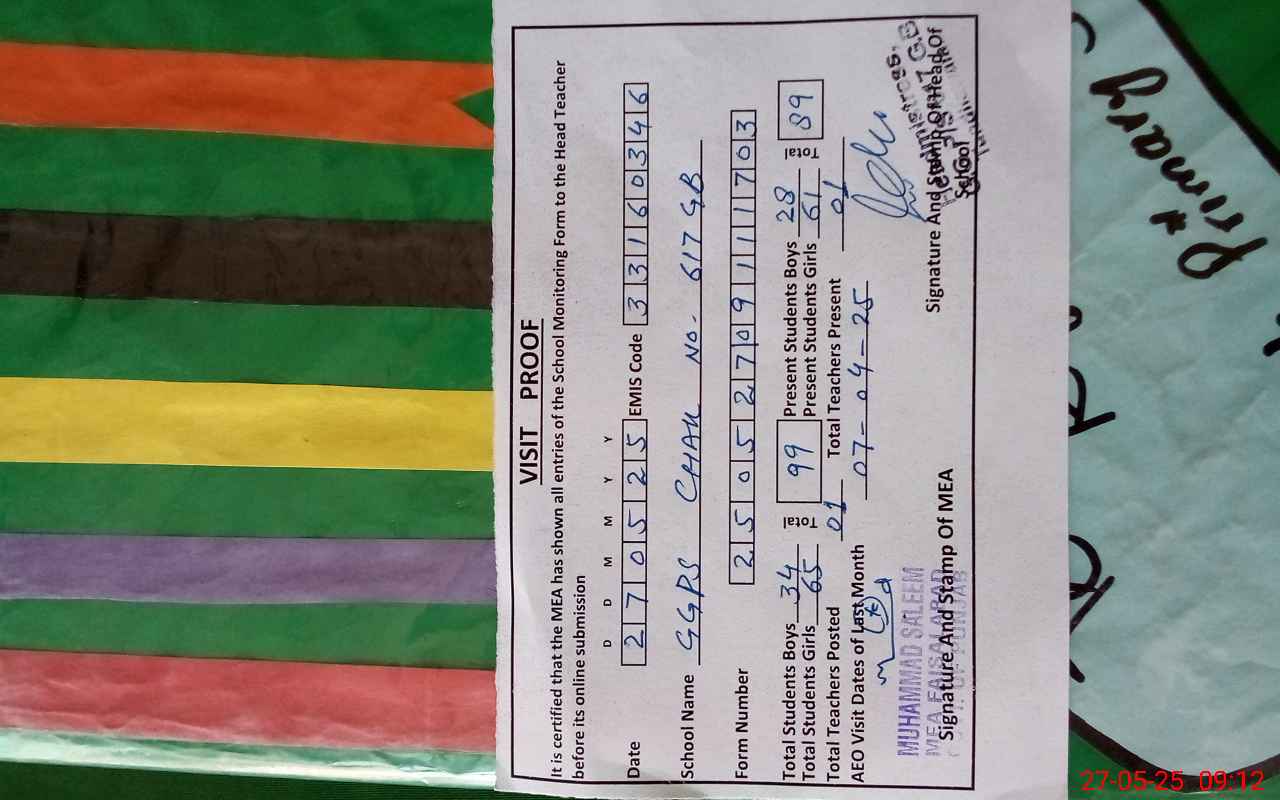 VISIT PROOF
It is certified that the MEA has shown all entries of the School Monitoring Form to the Head Teacher
before its online submission
D D M M Y Y
Date 270525 EMIS Code 33160346
School Name GGPS CHAK NO. 617 GB
Form Number 25052709111703
Total Students Boys 34 Total 99 Present Students Boys 28 Total 89
Total Students Girls 65 Present Students Girls 61
Total Teachers Posted 01 Total Teachers Present 01
AEO Visit Dates of Last Month 07-04-25
MUHAMMAD SALEEM
MEA FAISALABAD
OF PUNJAB
Signature And Stamp Of MEA
Headmistress,
617 G.B
Signature And Stamp Of Head Of
School
Primary
27-05-25 09:12